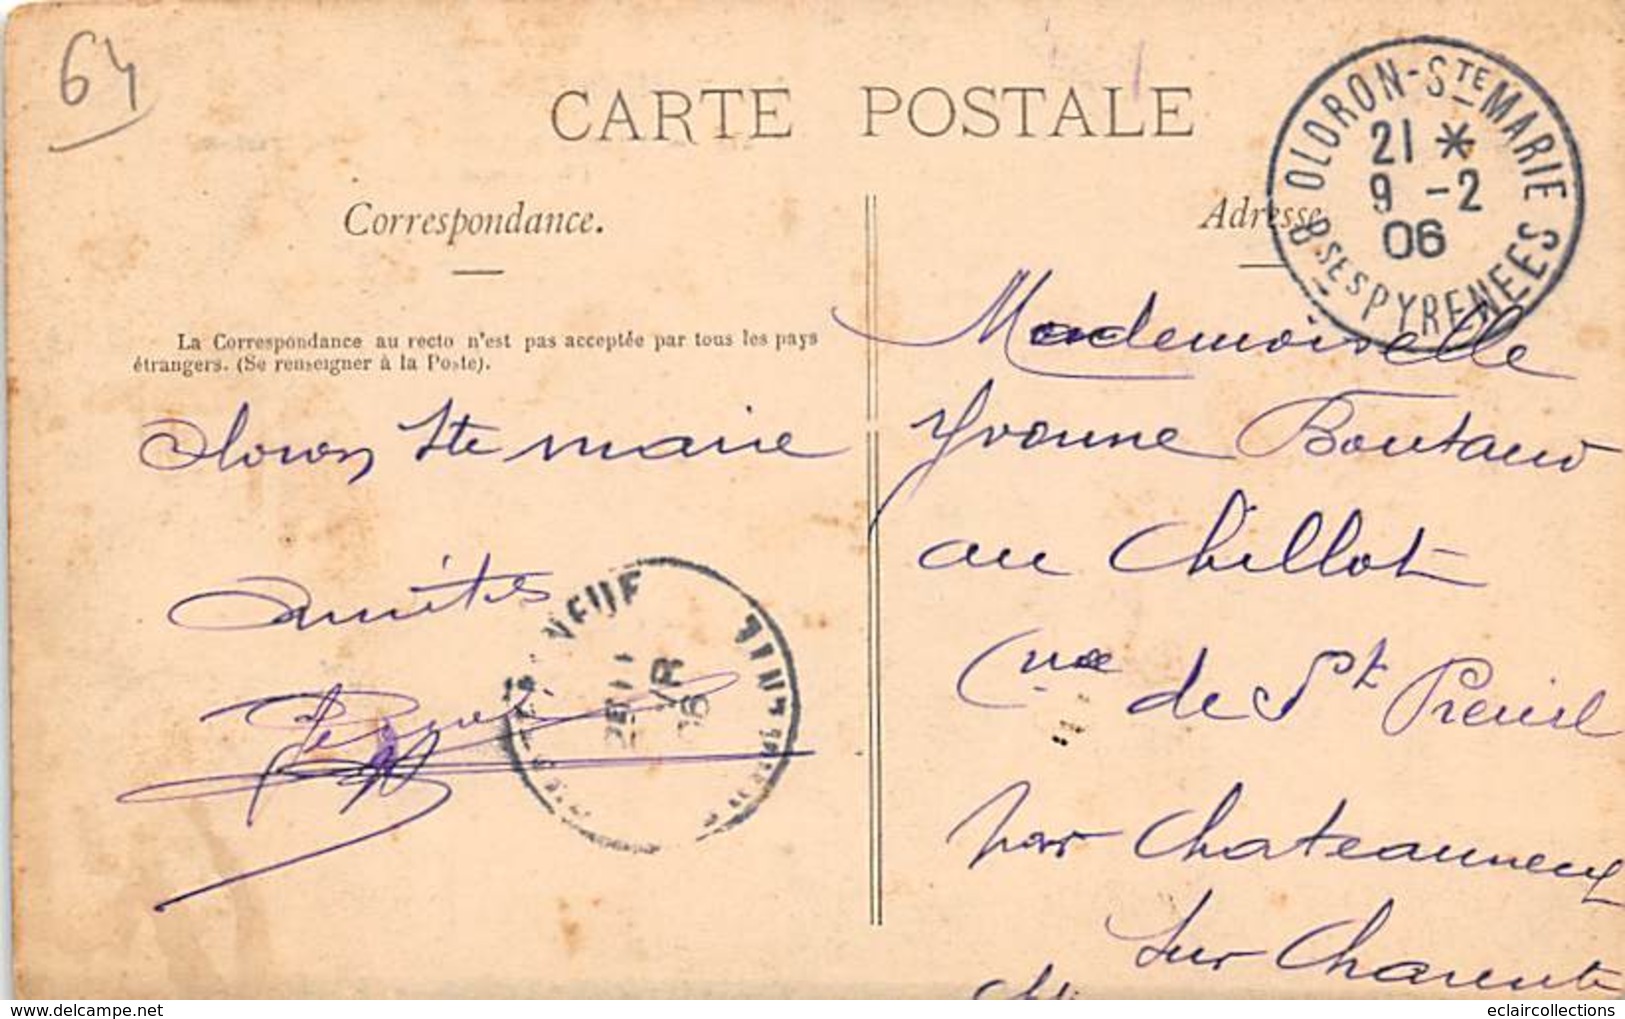 64
CARTE POSTALE
OLORON-STE MARIE
21 *
9 -2
06
BSES PYRENEES
Correspondance.
Adresse
La Correspondance au recto n'est pas acceptée par tous les pays
étrangers. (Se renseigner à la Poste).
Oloron Ste Marie
Amitiés
Mademoiselle
Yvonne Boutaud
au Chillot
Cne
de St Preuil
par Chateauneuf
sur Charente
eclaircollections